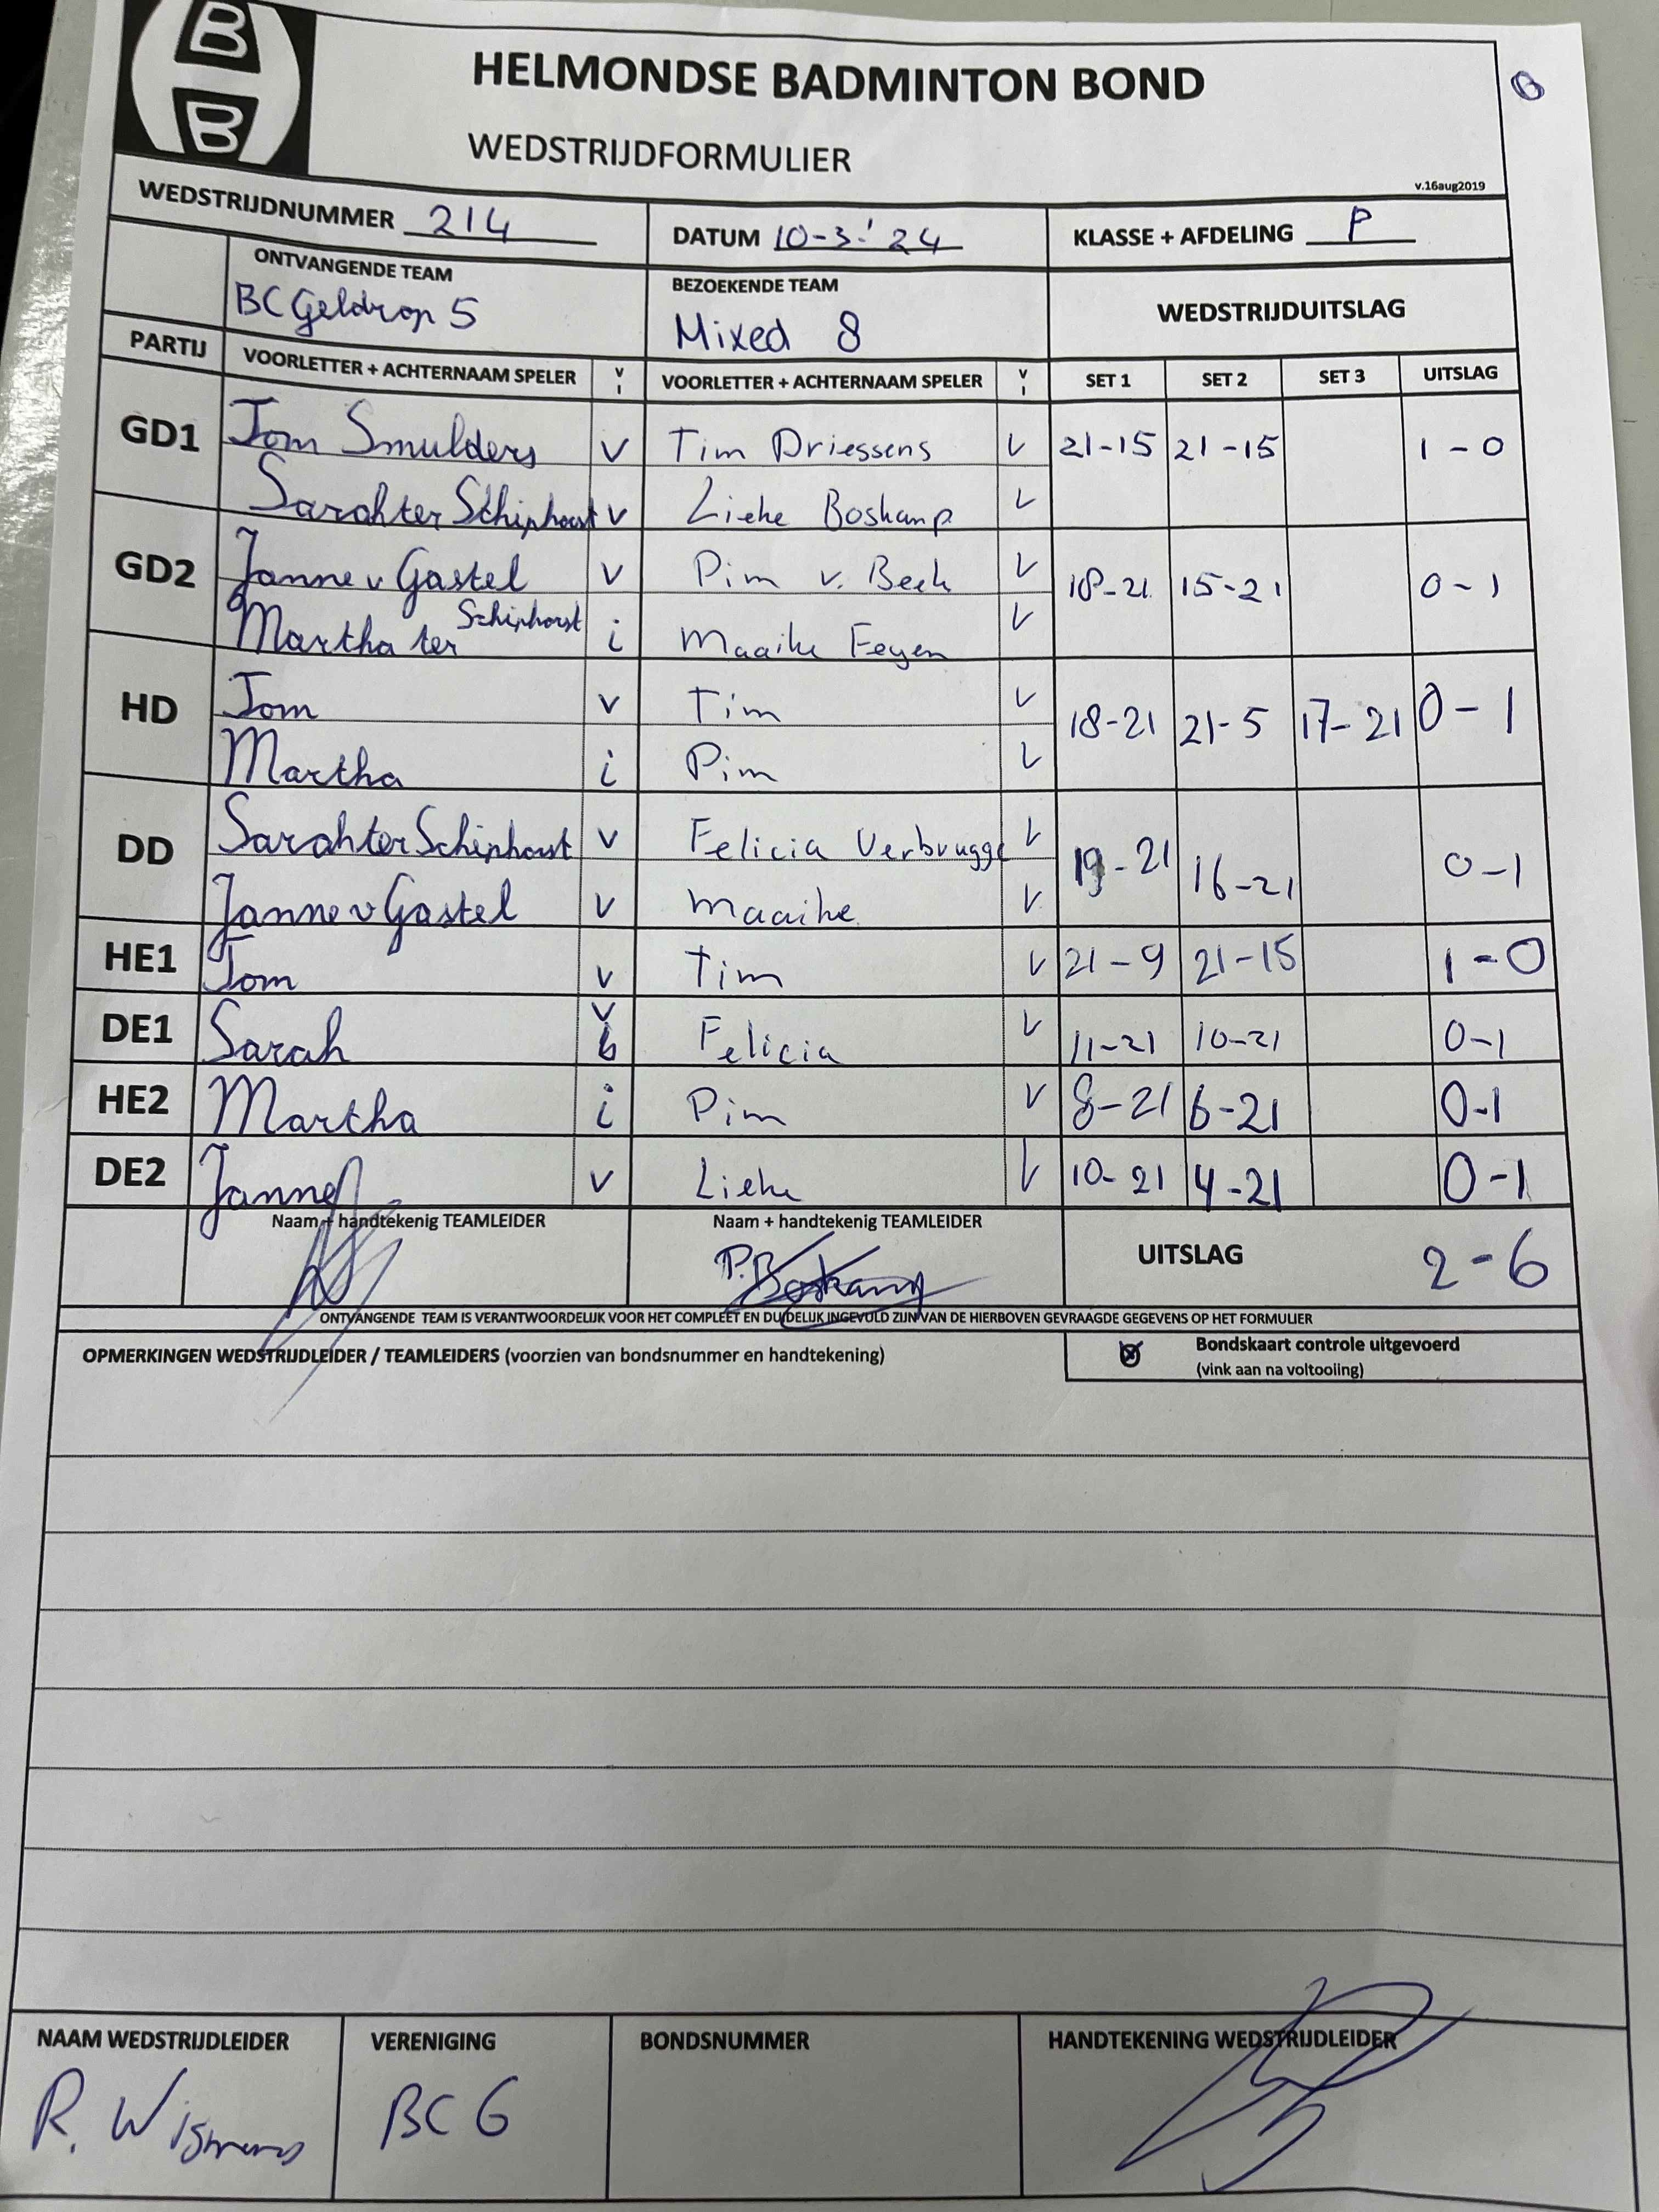 B
B
HELMONDSE BADMINTON BOND
WEDSTRIJDFORMULIER
v.16aug2019
WEDSTRIJDNUMMER 214 DATUM 10-3-'24 KLASSE + AFDELING P
ONTVANGENDE TEAM BEZOEKENDE TEAM WEDSTRIJDUITSLAG
BC Geldrop 5 Mixed 8
PARTIJ VOORLETTER + ACHTERNAAM SPELER V I VOORLETTER + ACHTERNAAM SPELER V I SET 1 SET 2 SET 3 UITSLAG
GD1 Tom Smulders v Tim Driessens v 21-15 21-15 1-0
Sarah ter Schiphorst v Lieke Boskamp v
GD2 Janne v Gastel v Pim v. Beek v 18-21 15-21 0-1
Martha ter Schiphorst i Maaike Feyen v
HD Tom v Tim v 18-21 21-5 17-21 0-1
Martha i Pim v
DD Sarah ter Schiphorst v Felicia Verbrugge v 19-21 16-21 0-1
Janne v Gastel v Maaike v
HE1 Tom v Tim v 21-9 21-15 1-0
DE1 Sarah v Felicia v 11-21 10-21 0-1
HE2 Martha i Pim v 8-21 6-21 0-1
DE2 Janne v Lieke v 10-21 4-21 0-1
Naam + handtekenig TEAMLEIDER Naam + handtekenig TEAMLEIDER UITSLAG 2-6
P. Boskamp
ONTVANGENDE TEAM IS VERANTWOORDELIJK VOOR HET COMPLEET EN DUIDELIJK INGEVULD ZIJN VAN DE HIERBOVEN GEVRAAGDE GEGEVENS OP HET FORMULIER
OPMERKINGEN WEDSTRIJDLEIDER / TEAMLEIDERS (voorzien van bondsnummer en handtekening) Bondskaart controle uitgevoerd
(vink aan na voltooiing)
NAAM WEDSTRIJDLEIDER VERENIGING BONDSNUMMER HANDTEKENING WEDSTRIJDLEIDER
R. BC G